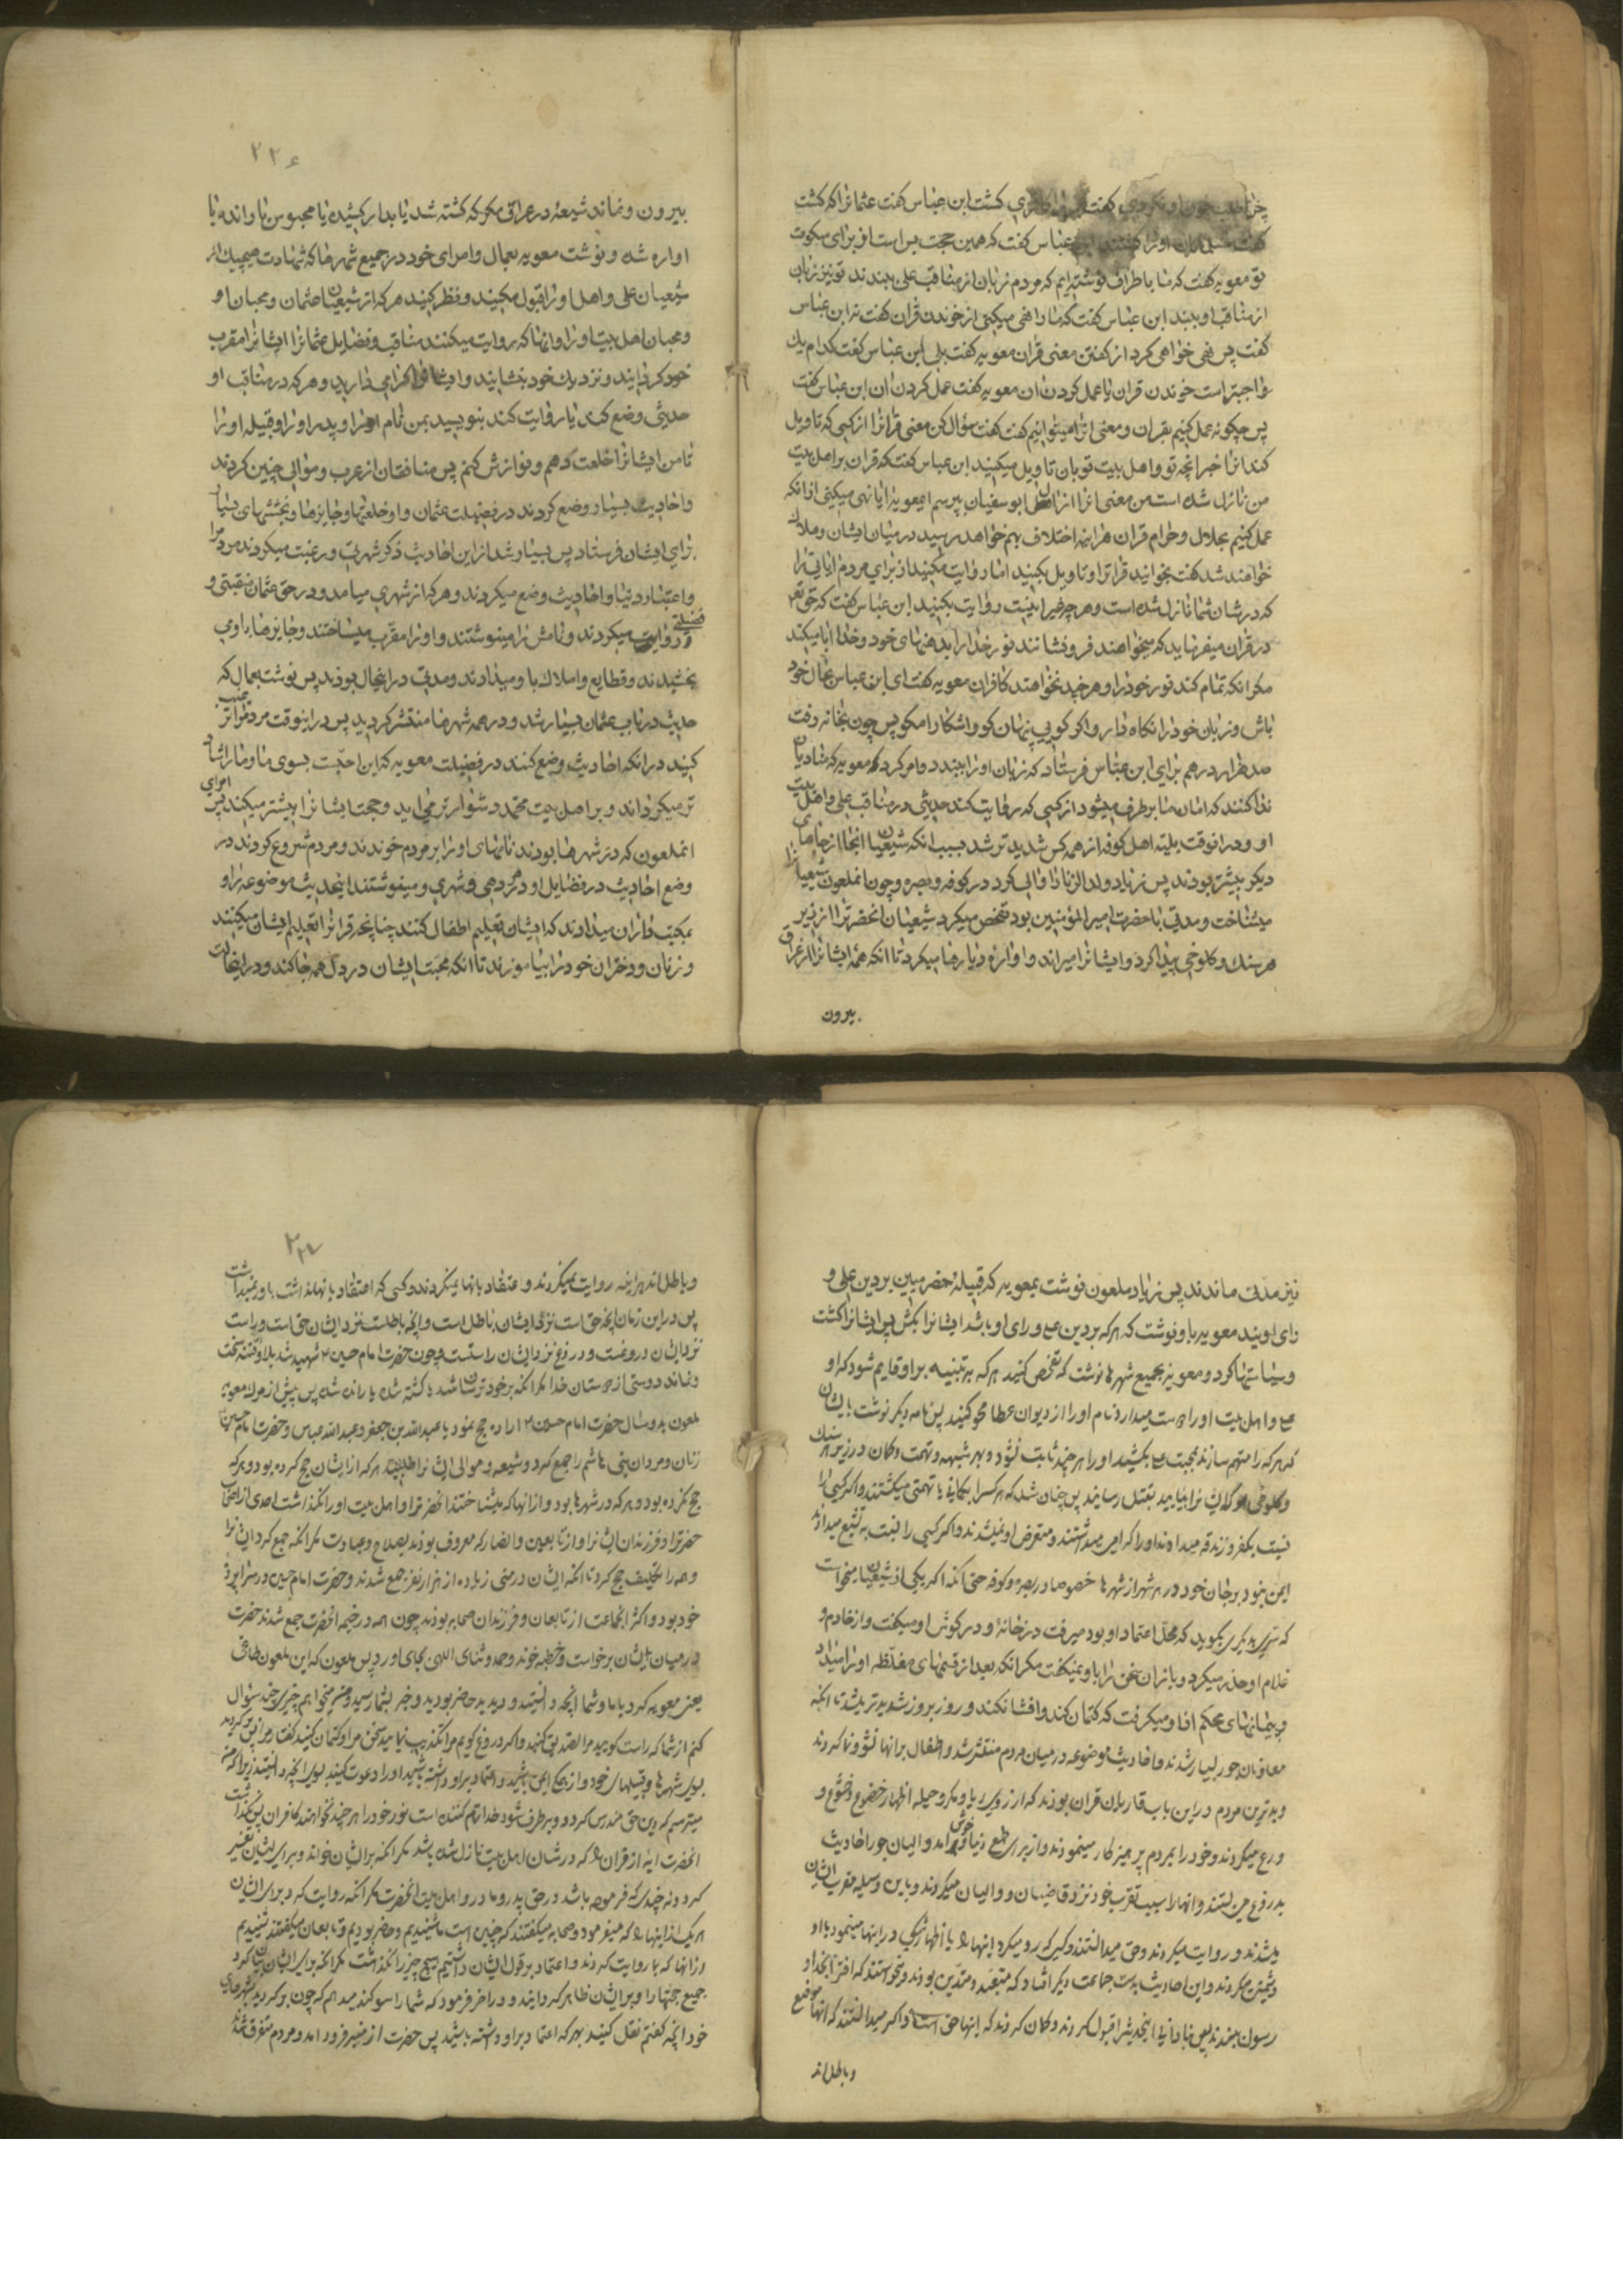 چرا طلب خون او نکردی گفت کشت ابن عباس گفت عثمانرا که کشت
گفت مسلمانان او را کشتند ابن عباس گفت که همین حجت بس است از برای سکوت
تو معویه گفت که ما باطراف نوشته ایم که مردم زبان از مناقب علی ببندند تو نیز زبان
از مناقب او ببند ابن عباس گفت که ما را نهی میکنی از خوندن قران گفت نه ابن عباس
گفت پس نهی خواهی کرد از گفتن معنی قران معویه گفت بلی ابن عباس گفت کدام یک
واجبتر است خوندن قران یا عمل کردن بان معویه گفت عمل کردن بان ابن عباس گفت
پس چگونه عمل کنیم بقران و معنی انرا گفت سؤال کن معنی قرانرا از کسی که تاویل
کند انرا خبر انچه تو و اهل بیت تو بان تاویل میکنید ابن عباس گفت که قران بر اهل بیت
من نازل شده است من معنی انرا از ال ابوسفیان بپرسم ایمعویه ایا نهی میکنی از انکه
عمل کنیم بحلال و حرام قران هراینه اختلاف بهم خواهد رسید در میان ایشان و هلاک
خواهند شد گفت بخوانید قرانرا و تاویل بکنید اما روایت مکنید از برای مردم ایاتی را
که در شان شما نازل شده است و هر چه غیر اینست روایت بکنید ابن عباس گفت که حق تع
در قران میفرماید که میخواهند فرو نشانند نور خدا را بدهنهای خود و خدا ابا میکند
مگر انکه تمام کند نور خود را و هر چند نخواهند کافران معویه گفت ای ابن عباس بحال خود
باش و زبان خود را نگاه دار و اگر گویی پنهان گو و اشکارا مگو پس چون بخانه رفت
صد هزار درهم برای ابن عباس فرستاد که زبان او را ببندد و امر کرد معویه که منادیان
ندا کنند که امان ما بر طرف میشود از کسی که روایت کند حدیثی در مناقب علی و اهل بیت
او و در انوقت بلیه اهل کوفه از همه کس شدیدتر شد بسبب انکه شیعیان انجا از جاهای
دیگر بیشتر بودند پس زیاد ولد الزنا را والی کرد در کوفه و بصره و چون انملعون شیعیانرا
میشناخت و مدتی با حضرت امیر المؤمنین بود تفحص میکرد شیعیان انحضرترا از زیر
هر سنک و کلوخی پیدا کرد و ایشانرا میراند و اواره دیارها میکرد تا انکه همه ایشانرا از عراق
بیرون
۲۲۶
بیرون و نماند شیعه در عراق مگر که کشته شد یا بدار کشیده یا محبوس یا رانده یا
اواره شد و نوشت معویه بعمال و امرای خود در جمیع شهرها که شهادت هیچیک از
شیعیان علی و اهل او را قبول مکنید و نظر کنید هر که از شیعیان عثمان و محبان او
و محبان اهل بیت او را و انها که روایت میکنند مناقب و فضایل عثمانرا ایشانرا مقرب
خود گردانید و نزدیک خود بنشانید و ایشانرا گرامی دارید و هر که در مناقب او
حدیثی وضع کند یا روایت کند بنویسید بمن نام او را و پدر او را و قبیله او را
تا من ایشانرا خلعت دهم و نوازش کنم پس منافقان از عرب و موالی چنین کردند
و احادیث بسیار وضع کردند در فضیلت عثمان و او خلعتها و جایزها و بخششهای بسیار
برای ایشان فرستاد پس بسیار شد از این احادیث در هر شهری و رغبت میکردند مردم
و اعتبار دنیا و احادیث وضع میکردند و هر که از شهری میامد و در حق عثمان منقبتی و
فضیلتی روایت میکردند و نامش را مینوشتند و او را مقرب میساختند و جایزها باو می
بخشیدند و قطایع و املاک باو میدادند و مدتی در اینحال بودند پس نوشت بعمال که
حدیث در باب عثمان بسیار شد و در همه شهرها منتشر گردید پس در اینوقت مردم را ترغیب
کنید در انکه احادیث وضع کنند در فضیلت معویه که این احبّ است بسوی ما و ما را شادتر
میگرداند و بر اهل بیت محمّد دشوارتر می اید و حجت ایشانرا بیشتر میکند پس امرای
انملعون که در شهرها بودند نامهای او را بر مردم خوندند و مردم شروع کردند در
وضع احادیث در فضایل او در هر دهی و شهری و مینوشتند اینحدیث موضوعه را و
بمکتب داران میدادند که ایشان تعلیم اطفال کنند چنانچه قرانرا تعلیم ایشان میکنند
و زنان و دختران خود را بیاموزند تا انکه محبت ایشان در دل همه جا کند و در اینحالت
نیز مدتی ماندند پس زیاد ملعون نوشت بمعویه که قبیله حضرمیین بر دین علی و
رای اویند معویه باو نوشت که هر که بر دین ع و رای او باشد ایشانرا بکش پس ایشانرا کشت
و سیاستها کرد و معویه بجمیع شهرها نوشت که تفحص کنید هر که بر او قایم شود که او
ع و اهل بیت او را دوست میدارد نام او را از دیوان عطا محو کنید پس نامه دیگر نوشت بایشان
که هر که را متهم سازند بمحبت ع بکشید او را هر چند ثابت نشود و بهر شبهه و تهمت و گمان در زیر هر سنک
و کلوخی که ایشانرا بیابید بقتل رسانید پس چنان شد که هر کسرا بگمانی یا تهمتی میکشتند و اگر کسی را
نسبت بکفر و زندقه میدادند او را گرامی میداشتند و متعرض او نمیشدند و اگر کسی را نسبت به تشیع میدادند
ایمن نبود بر جان خود در هر شهر از شهرها خصوصا در بصره و کوفه حتی انکه اگر یکی از شیعیان میخواست
که سرّی بدیگری بگوید که محلّ اعتماد او بود میرفت در خانه و در گوش او میگفت و از خادم و
غلام او حذر میکرد و بازان سخن را باو نمیگفت مگر انکه بعد از قسمهای مغلّظه او را میداد
و پیمانهای محکم از او میگرفت که کتمان کند و افشا نکند و روز بروز شدیدتر میشد تا انکه
معاونان جور بسیار شدند و احادیث موضوعه در میان مردم منتشر شد و اطفال بر انها نشو و نما کردند
و بدترین مردم در این باب قاریان قران بودند که از روی ریا و مکر و حیله اظهار خضوع و خشوع و
ورع میکردند و خود را بمردم پرهیزکار مینمودند و از برای طمع دنیا و خوش امد والیان جور احادیث
بدروغ می بستند و انها را سبب تقرب خود نزد قاضیان و والیان میکردند و باین وسیله مقرب ایشان
میشدند و روایت میکردند و حق میدانستند و کسی که رد میکرد اینها را یا اظهار شکی در اینها مینمود با او
دشمنی میکردند و این احادیث بدست جماعت دیگر افتاد که متعبد و متدین بودند و نمیخواستند که افترا بخدا و
رسول ببندند پس بنادانی اینحدیث را قبول کردند و گمان کردند که اینها حق است و اگر میدانستند که انها موضوع
و باطل اند
۲۲۷
و باطل اند هراینه روایت نمیکردند و اعتقاد بانها نمیکردند و کسی که اعتقاد بانها نداشت باور نمیداشت
پس در این زمان انچه حق است نزد ایشان باطل است و انچه باطلست نزد ایشان حق است و راست
نزد ایشان دروغست و دروغ نزد ایشان راستست و چون حضرت امام حسن ع شهید شد بلا و فتنه سخت
و نماند دوستی از دوستان خدا مگر انکه بر خود ترسان باشد یا کشته شده یا رانده شد پس پیش از مرگ معویه
ملعون بدو سال حضرت امام حسین ع اراده حج نمود با عبد الله بن جعفر و عبد الله عباس و حضرت امام حسین ع
زنان و مردان بنی هاشم را جمع کرد و شیعه و موالی ایشانرا طلبید هر که از ایشان حج کرده بود و هر که
حج نکرده بود و هر که در شهرها بود و از انها که میشناختند انحضرترا و اهل بیت او را نگذاشت احدی از اصحاب
حضرترا و فرزندان ایشانرا و از تابعین و انصار که معروف بودند بصلاح و عبادت مگر انکه جمع کرد ایشانرا
و همه را تکلیف حج کرد تا انکه ایشان در منی زیاده از هزار نفر جمع شدند و حضرت امام حسین در سراپرده
خود بود و اکثر انجماعت از تابعان و فرزندان صحابه بودند چون همه در خیمه انحضرت جمع شدند حضرت
در میان ایشان برخواست و خطبه خوند و حمد و ثنای الهی بجای اورد پس که این ملعون طاغی
یعنی معویه کرد با ما و شما انچه دانستید و دیدید حاضر بودید و خبر بشما رسید و من میخواهم چیزی چند سؤال
کنم از شما که راست گویید مرا تصدیق کنید و اگر دروغ گویم مرا تکذیب نمایید سخن مرا و کتمان کنید گفتار مرا پس برگردید
بسوی شهرها و قبیلهای خود و از هر که ایمن باشید و اعتماد بر او داشته باشید او را دعوت کنید بسوی انچه دانستید زیرا که من
میترسم که دین حق مندرس گردد و برطرف شود خدا تمام کننده است نور خود را هر چند نخواهند کافران پس نگذاشت
انحضرت ایه از قران را که در شان اهل بیت نازل شده باشد مگر انکه بر ایشان خواند و برای ایشان تفسیر
کرد و نه چیزی که فرموده باشد در حق پدر و مادر و اهل بیت انحضرت مگر انکه روایت کرد برای ایشان
هر یک از اینها را که میفرمود صحابه میگفتند که چنین است ما شنیدیم و حاضر بودیم و تابعان میگفتند شنیدیم
از انها که بما روایت کردند و اعتماد بر قول ایشان داشتیم هیچ چیز را نگذاشت مگر انکه برای ایشان بیان کرد
جمیع حجتها را و بر ایشان ظاهر گردانید و در اخر فرمود که شما را سوگند میدهم که چون برگردید بشهرهای
خود انچه گفتم نقل کنید بهر که اعتماد بر او داشته باشید پس حضرت از منبر فرود امد و مردم متفرق شدند